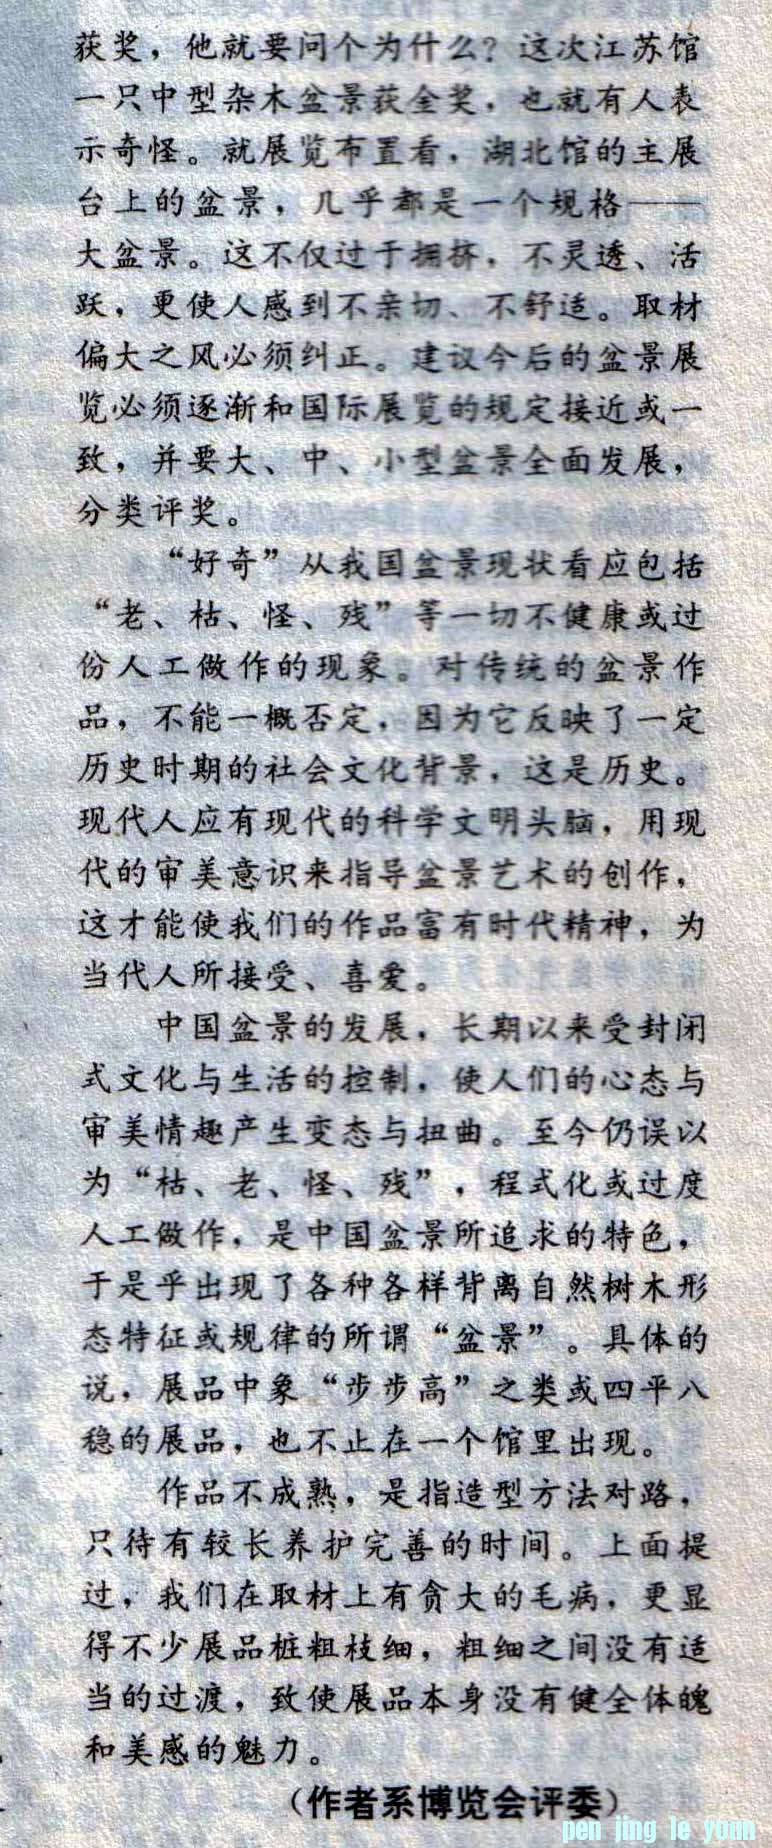 获奖，他就要问个为什么？这次江苏馆
一只中型杂木盆景获金奖，也就有人表
示奇怪。就展览布置看，湖北馆的主展
台上的盆景，几乎都是一个规格——
大盆景。这不仅过于拥挤，不灵透、活
跃，更使人感到不亲切、不舒适。取材
偏大之风必须纠正。建议今后的盆景展
览必须逐渐和国际展览的规定接近或一
致，并要大、中、小型盆景全面发展，
分类评奖。
“好奇”从我国盆景现状看应包括
“老、枯、怪、残”等一切不健康或过
份人工做作的现象。对传统的盆景作
品，不能一概否定，因为它反映了一定
历史时期的社会文化背景，这是历史。
现代人应有现代的科学文明头脑，用现
代的审美意识来指导盆景艺术的创作，
这才能使我们的作品富有时代精神，为
当代人所接受、喜爱。
中国盆景的发展，长期以来受封闭
式文化与生活的控制，使人们的心态与
审美情趣产生变态与扭曲。至今仍误以
为“枯、老、怪、残”，程式化或过度
人工做作，是中国盆景所追求的特色，
于是乎出现了各种各样背离自然树木形
态特征或规律的所谓“盆景”。具体的
说，展品中象“步步高”之类或四平八
稳的展品，也不止在一个馆里出现。
作品不成熟，是指造型方法对路，
只待有较长养护完善的时间。上面提
过，我们在取材上有贪大的毛病，更显
得不少展品桩粗枝细，粗细之间没有适
当的过渡，致使展品本身没有健全体魄
和美感的魅力。
（作者系博览会评委）
pen jing le yuan